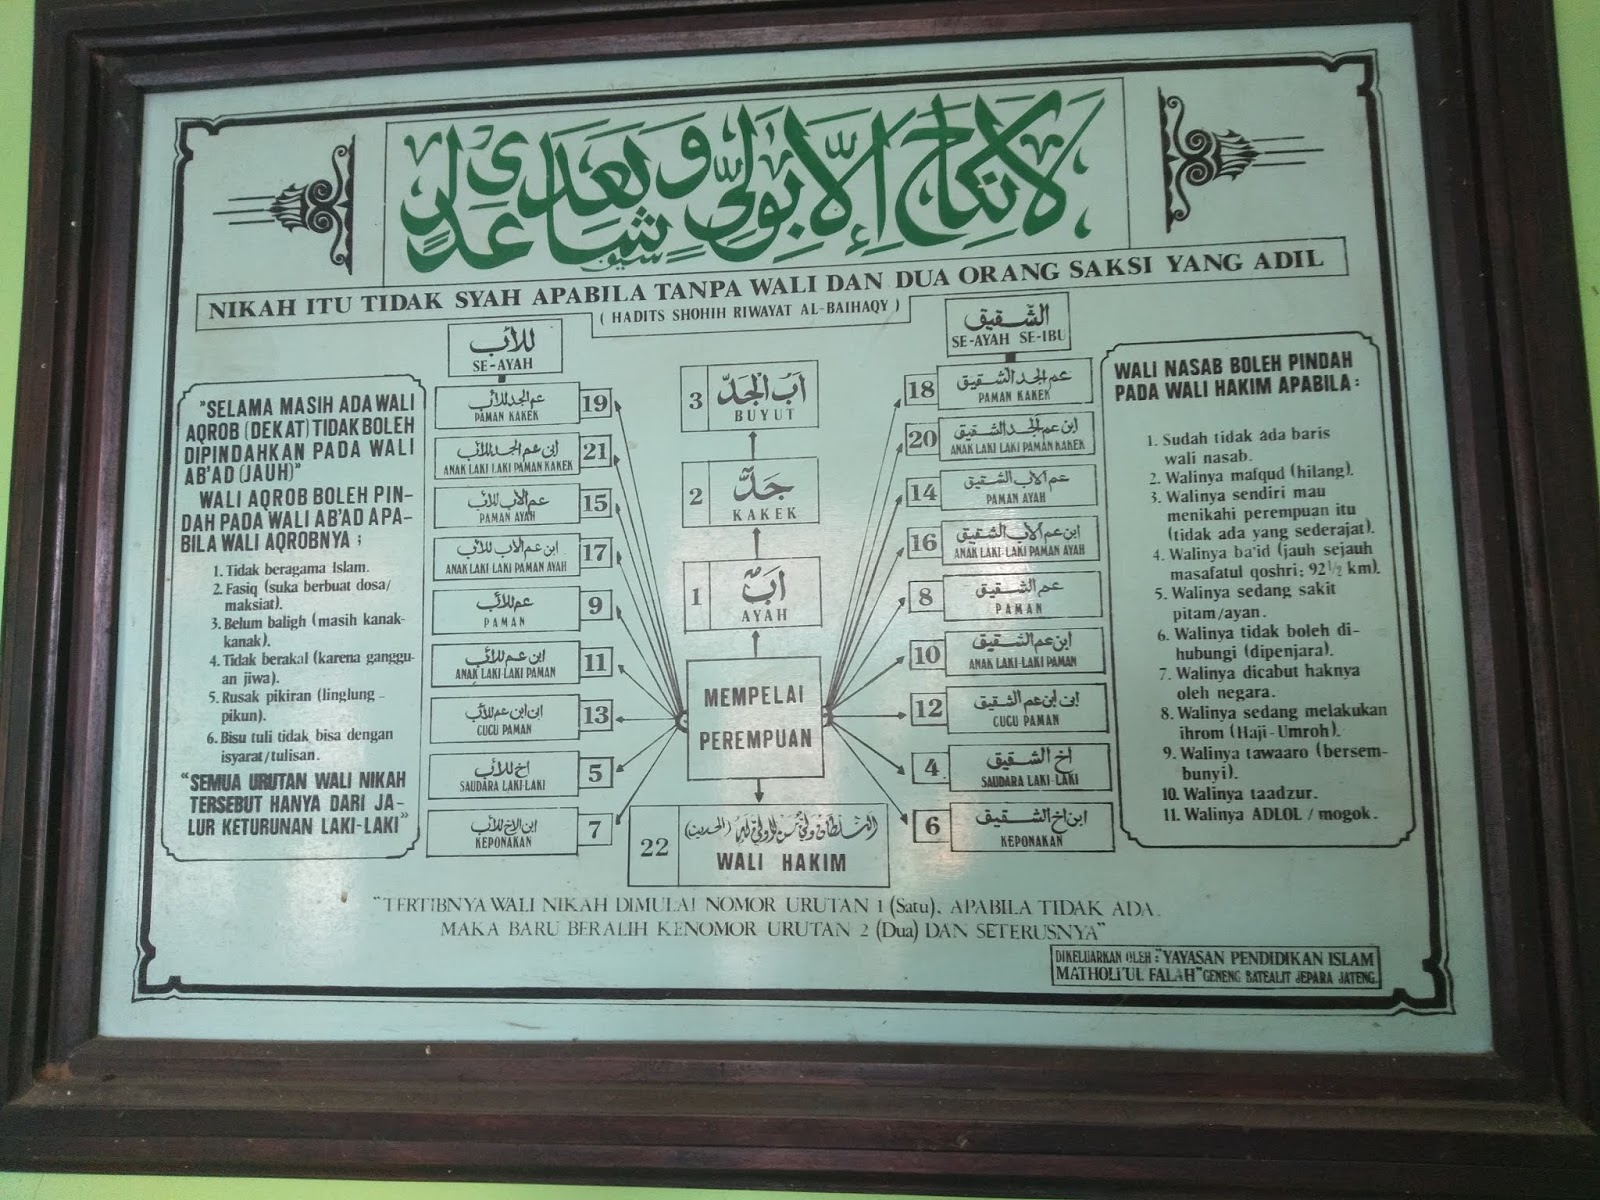 لا نكاح إلا بولي وشاهدي عدل
NIKAH ITU TIDAK SYAH APABILA TANPA WALI DAN DUA ORANG SAKSI YANG ADIL
( HADITS SHOHIH RIWAYAT AL-BAIHAQY )
"SELAMA MASIH ADA WALI
AQROB (DEKAT) TIDAK BOLEH
DIPINDAHKAN PADA WALI
AB'AD (JAUH)"
WALI AQROB BOLEH PIN-
DAH PADA WALI AB'AD APA-
BILA WALI AQROBNYA ;
1. Tidak beragama Islam.
2. Fasiq (suka berbuat dosa/
maksiat).
3. Belum baligh (masih kanak-
kanak).
4. Tidak berakal (karena ganggu-
an jiwa).
5. Rusak pikiran (linglung -
pikun).
6. Bisu tuli tidak bisa dengan
isyarat/tulisan.
"SEMUA URUTAN WALI NIKAH
TERSEBUT HANYA DARI JA-
LUR KETURUNAN LAKI-LAKI"
للأب
SE-AYAH
عم الجد للأب
PAMAN KAKEK
19
ابن عم الجد للأب
ANAK LAKI LAKI PAMAN KAKEK
21
عم الأب للأب
PAMAN AYAH
15
ابن عم الأب للأب
ANAK LAKI-LAKI PAMAN AYAH
17
عم للأب
PAMAN
9
ابن عم للأب
ANAK LAKI-LAKI PAMAN
11
ابن ابن عم للأب
CUCU PAMAN
13
اخ للأب
SAUDARA LAKI-LAKI
5
ابن الاخ للأب
KEPONAKAN
7
3
اب الجد
BUYUT
2
جد
KAKEK
1
اب
AYAH
MEMPELAI
PEREMPUAN
22
WALI HAKIM
الشقيق
SE-AYAH SE-IBU
18
عم الجد الشقيق
PAMAN KAKEK
20
ابن عم الجد الشقيق
ANAK LAKI LAKI PAMAN KAKEK
14
عم الأب الشقيق
PAMAN AYAH
16
ابن عم الأب الشقيق
ANAK LAKI-LAKI PAMAN AYAH
8
عم الشقيق
PAMAN
10
ابن عم الشقيق
ANAK LAKI-LAKI PAMAN
12
ابن ابن عم الشقيق
CUCU PAMAN
4
اخ الشقيق
SAUDARA LAKI-LAKI
6
ابن اخ الشقيق
KEPONAKAN
WALI NASAB BOLEH PINDAH
PADA WALI HAKIM APABILA :
1. Sudah tidak ada baris
wali nasab.
2. Walinya mafqud (hilang).
3. Walinya sendiri mau
menikahi perempuan itu
(tidak ada yang sederajat).
4. Walinya ba'id (jauh sejauh
masafatul qoshri; 92 1/2 km).
5. Walinya sedang sakit
pitam/ayan.
6. Walinya tidak boleh di-
hubungi (dipenjara).
7. Walinya dicabut haknya
oleh negara.
8. Walinya sedang melakukan
ihrom (Haji-Umroh).
9. Walinya tawaaro (bersem-
bunyi).
10. Walinya taadzur.
11. Walinya ADLOL / mogok.
"TERTIBNYA WALI NIKAH DIMULAI NOMOR URUTAN 1 (Satu), APABILA TIDAK ADA.
MAKA BARU BERALIH KENOMOR URUTAN 2 (Dua) DAN SETERUSNYA"
DIKELUARKAN OLEH : "YAYASAN PENDIDIKAN ISLAM
MATHOLI'UL FALAH" GENENG BATEALIT JEPARA JATENG.